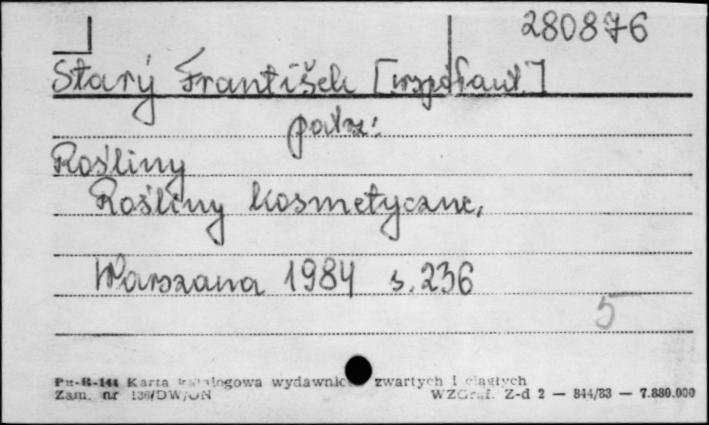 280876
Starý František [współaut.]
patrz:
Rośliny
Rośliny kosmetyczne,
Warszawa 1984 s. 236
5
Pu-B-144 Karta katalogowa wydawnic zwartych i ciągłych
Zam. nr 136/DW/ON WZGraf. Z-d 2 — 844/83 — 7.880.000